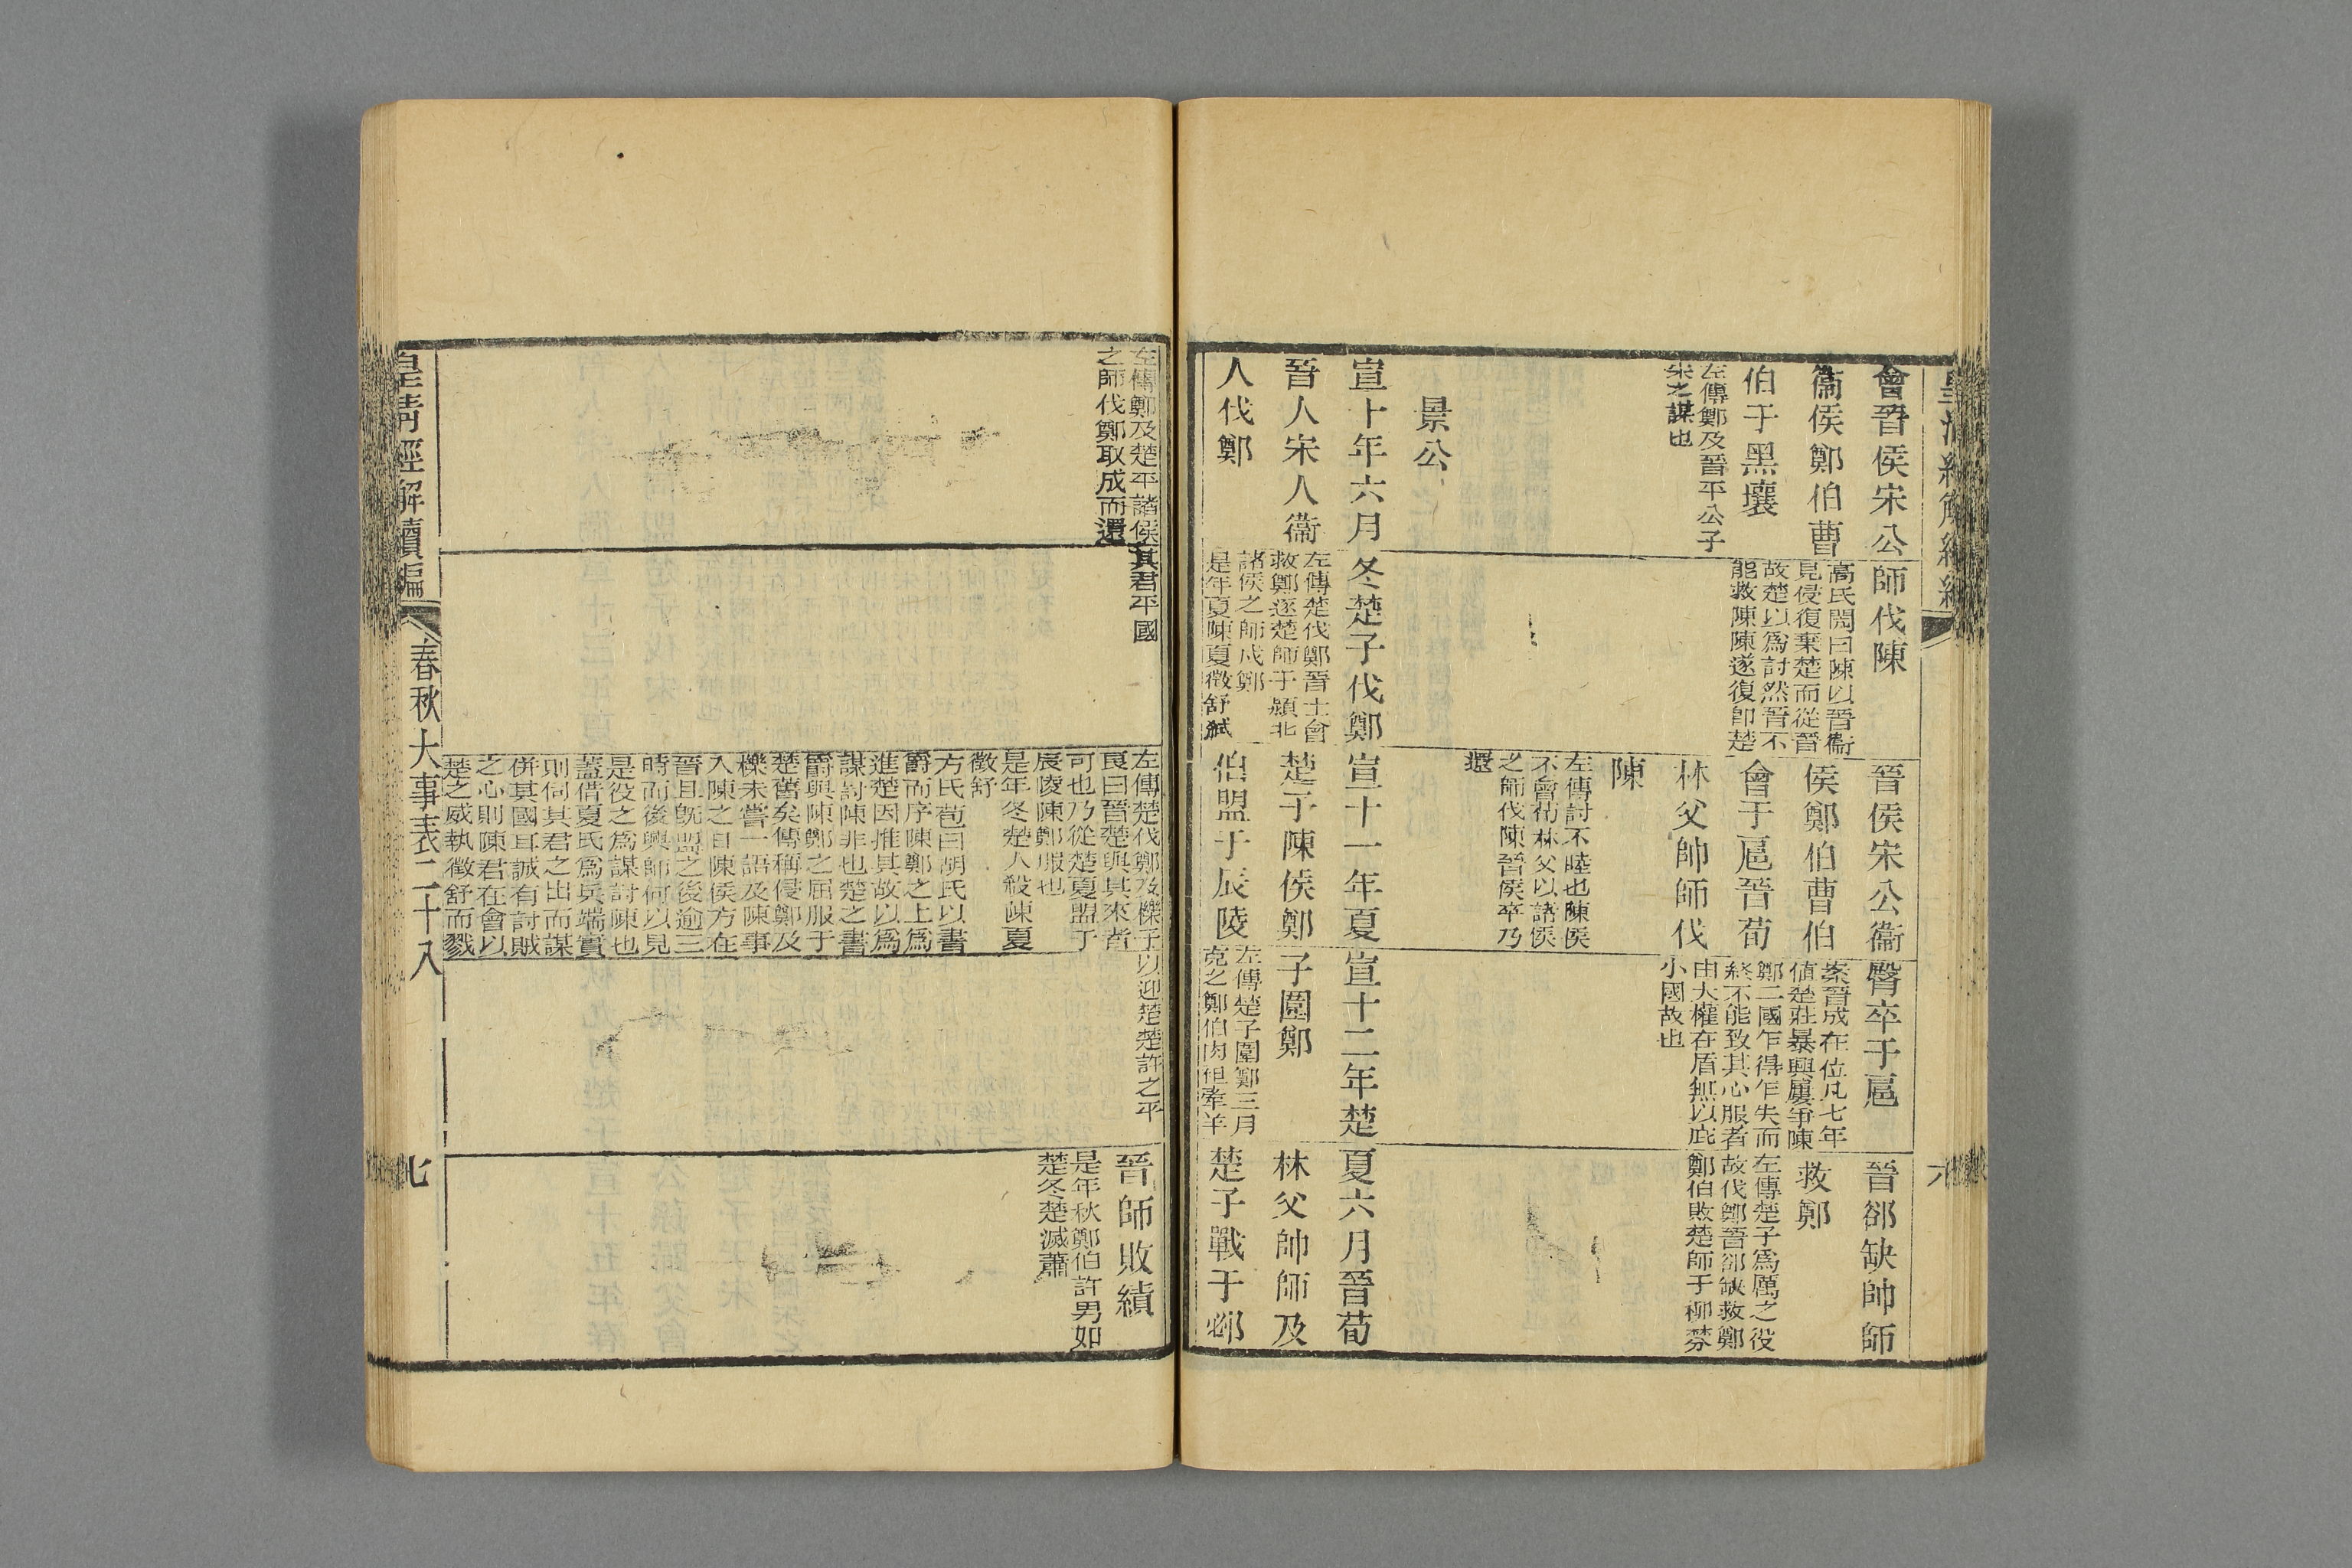 皇清經解續編
六
會晉侯宋公
衞侯鄭伯曹
伯于黑壤
左傳鄭及晉平公子
宋之謀也
師伐陳
高氏閌曰陳以晉衞
見侵復棄楚而從晉
故楚以爲討然晉不
能救陳陳遂復卽楚
晉侯宋公衞
侯鄭伯曹伯
會于扈晉荀
林父帥師伐
陳
左傳討不睦也陳侯
不會荀林父以諸侯
之師伐陳晉侯卒乃
還
臀卒于扈
案晉成在位凡七年
値楚莊暴興屢爭陳
鄭二國乍得乍失而
終不能致其心服者
由大權在盾無以庇
小國故也
晉郤缺帥師
救鄭
左傳楚子爲厲之役
故伐鄭晉郤缺救鄭
鄭伯敗楚師于柳棼
景公
宣十年六月
晉人宋人衞
人伐鄭
冬楚子伐鄭
左傳楚伐鄭晉士會
救鄭逐楚師于潁北
諸侯之師戍鄭
是年夏陳夏徵舒弑
宣十一年夏
楚子陳侯鄭
伯盟于辰陵
宣十二年楚
子圍鄭
左傳楚子圍鄭三月
克之鄭伯肉袒牽羊
夏六月晉荀
林父帥師及
楚子戰于邲
左傳鄭及楚平諸侯
之師伐鄭取成而還
其君平國
左傳楚伐鄭及櫟子
良曰晉楚與其來者
可也乃從楚夏盟于
辰陵陳鄭服也
是年冬楚人殺陳夏
徵舒
方氏苞曰胡氏以書
爵而序陳鄭之上爲
進楚因推其故以爲
謀討陳非也楚之書
爵與陳鄭之屈服于
楚舊矣傳稱侵鄭及
櫟未嘗一語及陳事
入陳之日陳侯方在
晉且旣盟之後逾三
時而後興師何以見
是役之爲謀討陳也
蓋借夏氏爲兵端實
則伺其君之出而謀
併其國耳誠有討賊
之心則陳君在會以
楚之威執徵舒而戮
以迎楚楚許之平
晉師敗績
是年秋鄭伯許男如
楚冬楚滅蕭
皇清經解續編
春秋大事表二十八
七